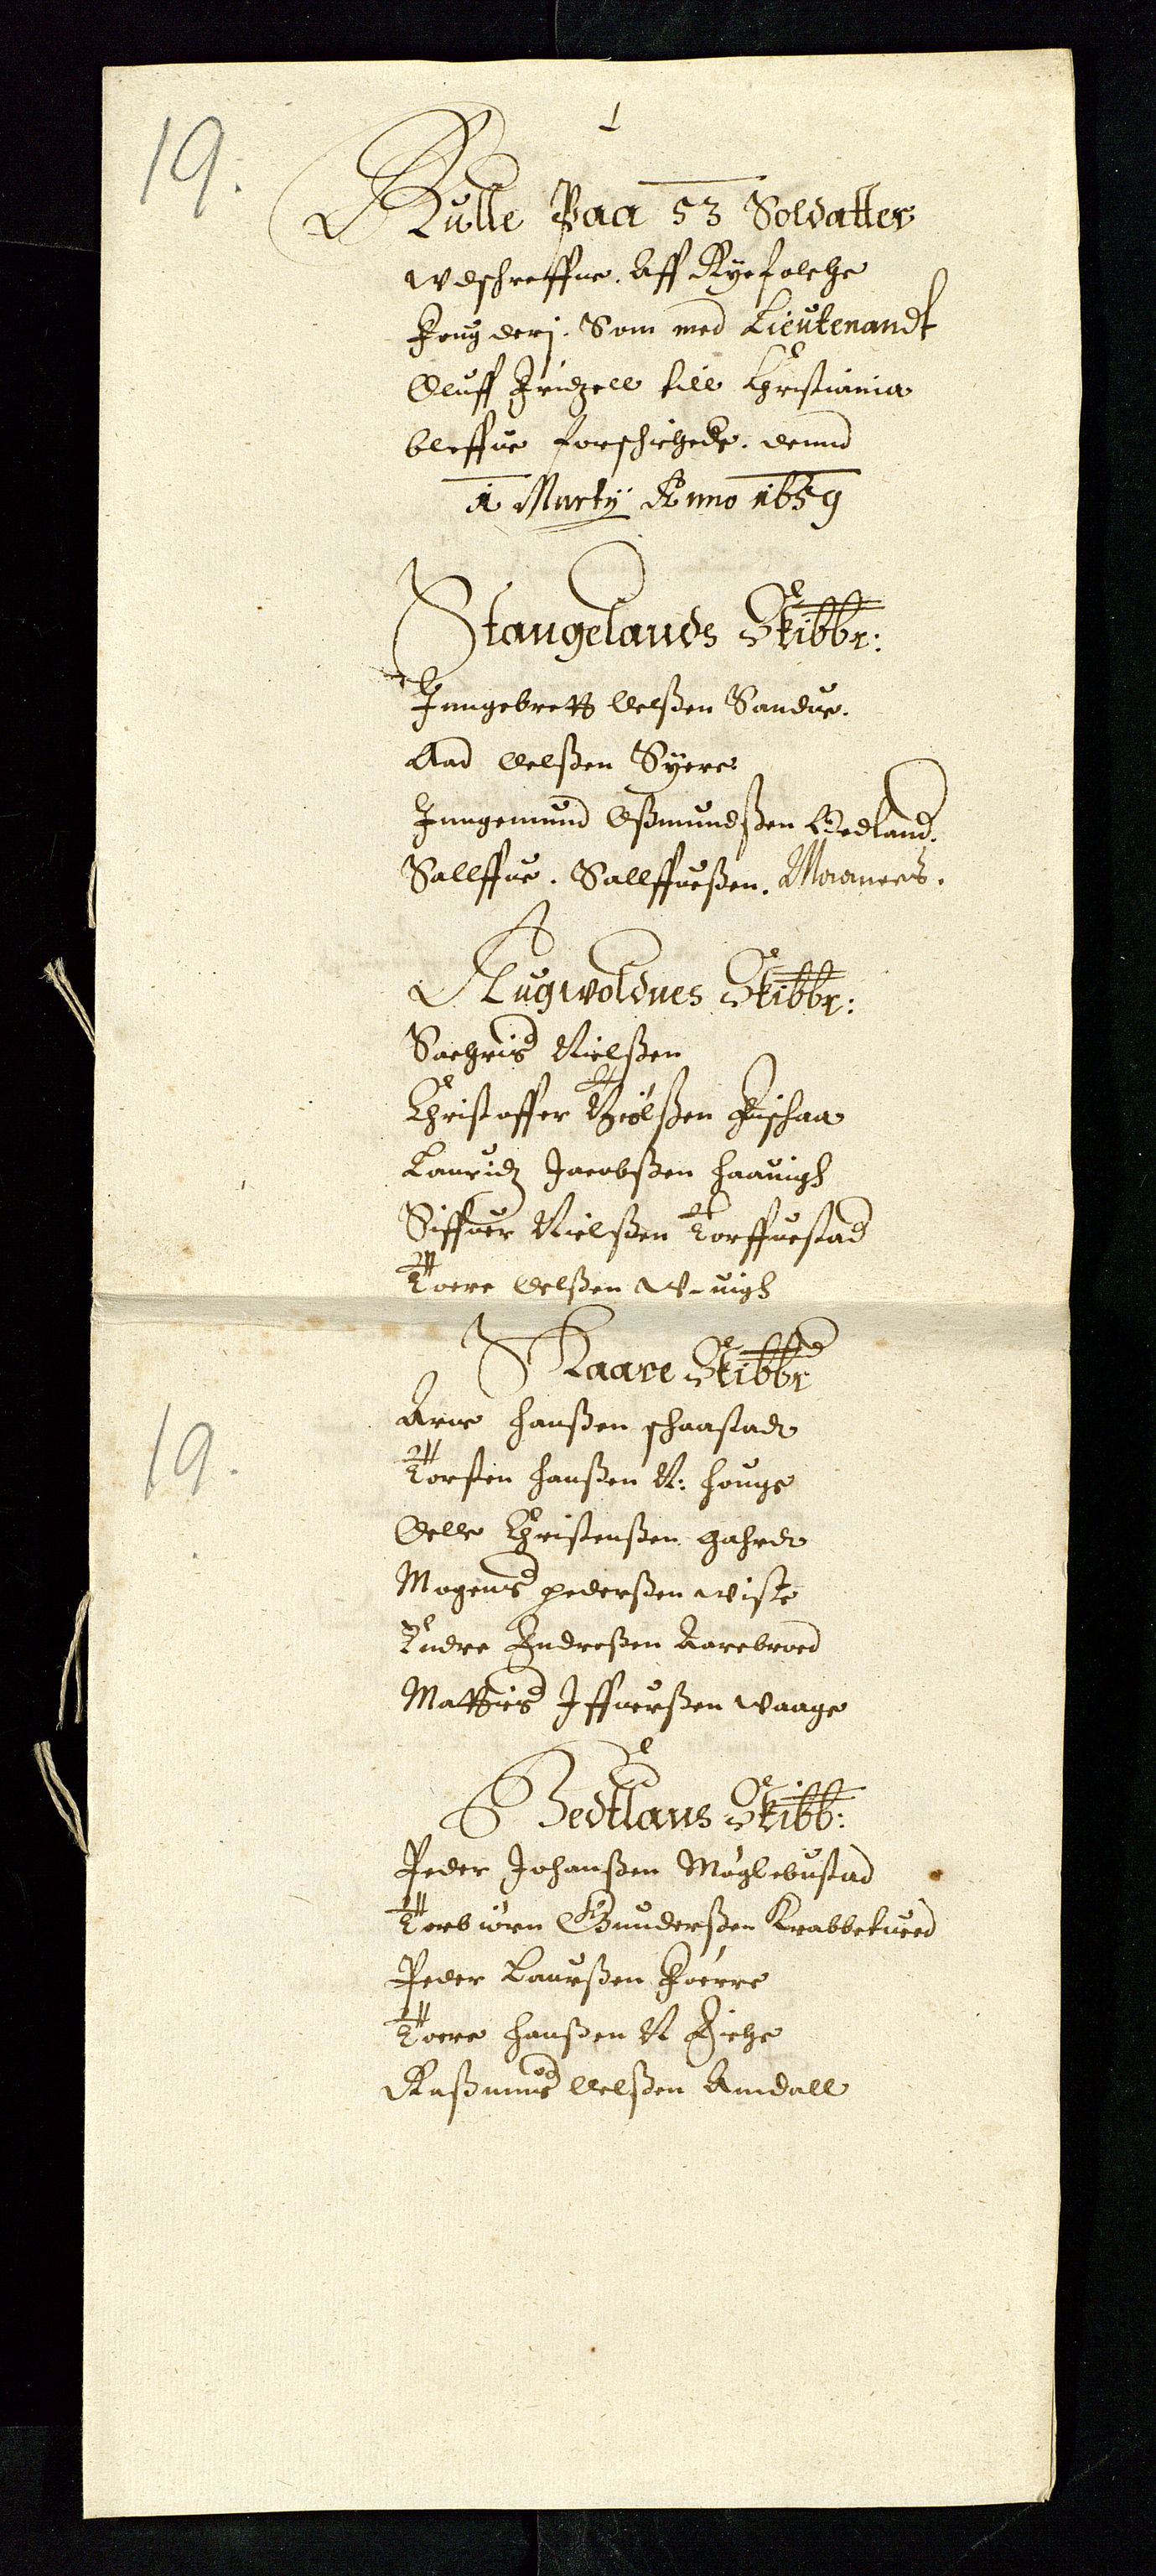 19.
1
Rulle Paa 53 Soldatter
wdschreffne. Aff Ryefolche
Fougderj. Som med Lieutenandt
Oluff Fridzell till Christiania
bleffue forschichede. dennd
1 Marty Anno 1659
Stangelands Skibbr:
Jnngebrett Oelßen Sandue.
Aad Oelßen Syere
Jnngemund Oßmundßen Wedland.
Sallffue. Sallffueßen. Maanees.
Augwoldnes Skibbr:
Sachris Nielßen
Christoffer Nielßen Fischaa
Lauridz Jacobßen haauigh
Siffuer Nielßen Torffuestad
Toere Oelßen W-uigh
Skaare Skibbr
Arne hanßen schaastad
Torsten hanßen N: houge
Oelle Christenßen gahrd
Mogens pederßen wiste
Endre Endreßen Aarebroed
Mattis Jffuerßen waage
Hedtlans Skibb:
Peder Johanßen Møglebustad
Torbiørn Gunderßen Krabbetued
Peder Laurßen Foerre
Toere hanßen N
Raßmus Oelßen Amdall
19.